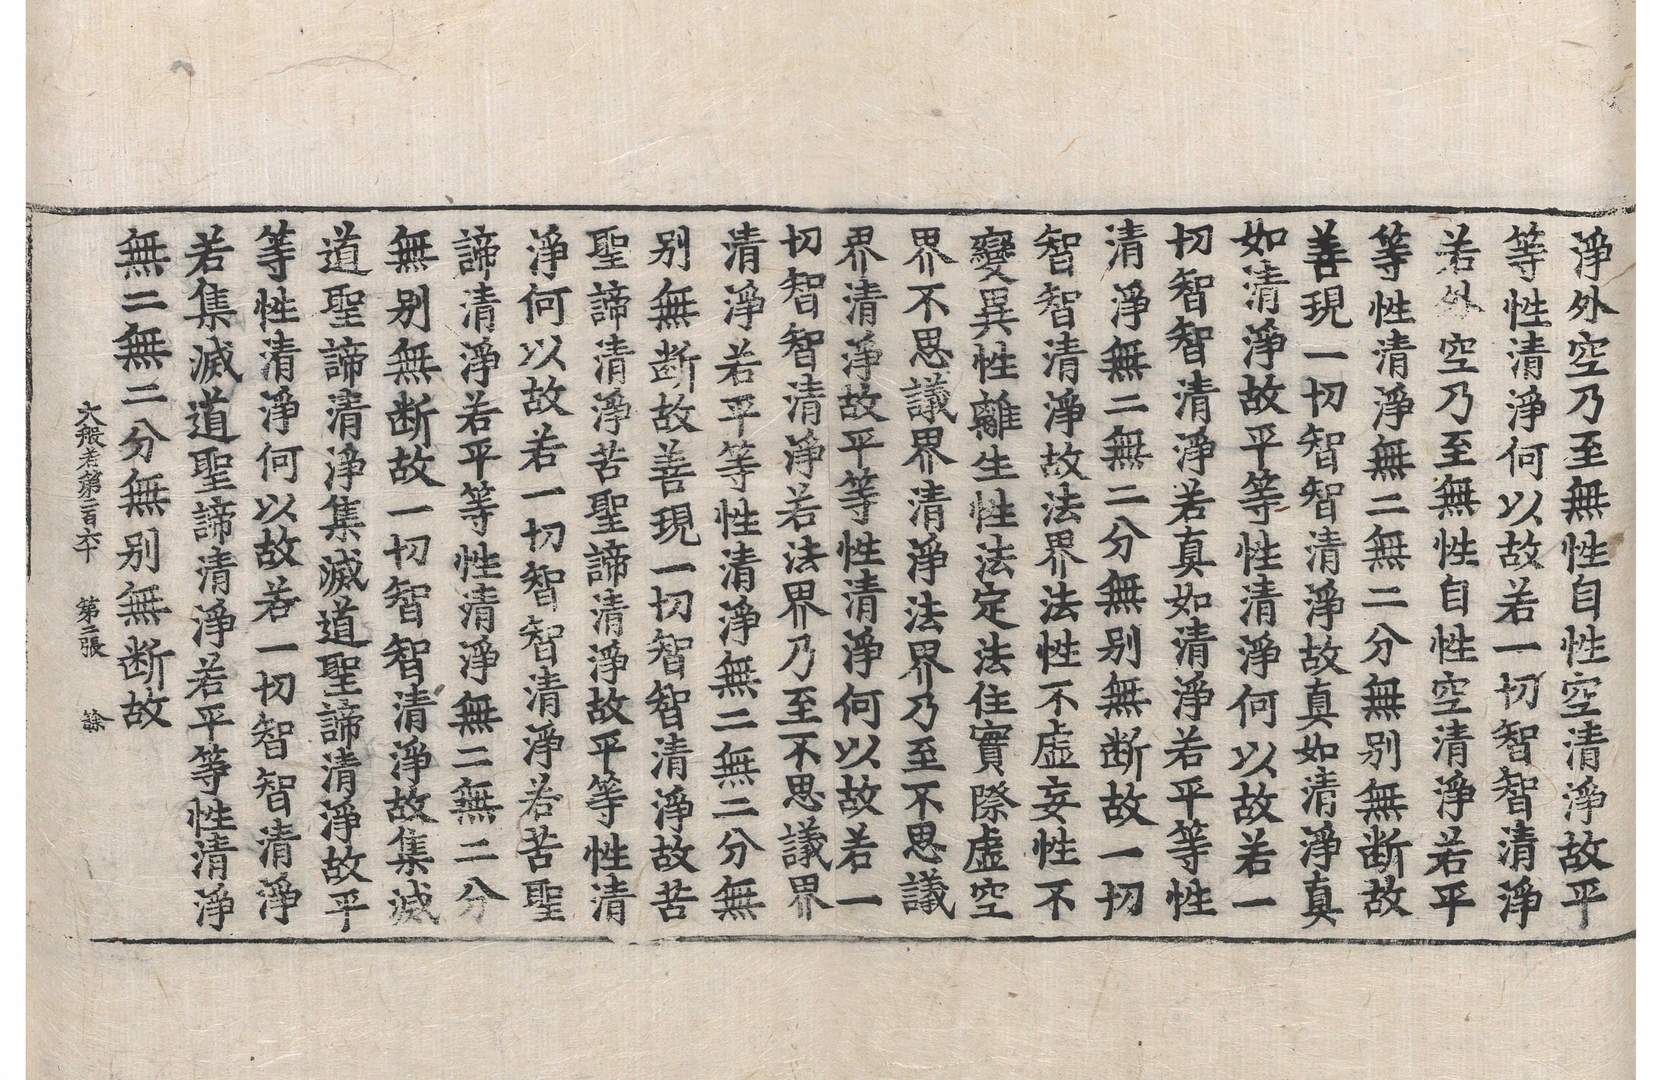 淨外空乃至無性自性空清淨故平
等性清淨何以故若一切智智清淨
若外空乃至無性自性空清淨若平
等性清淨無二無二分無別無断故
善現一切智智清淨故真如清淨真
如清淨故平等性清淨何以故若一
切智智清淨若真如清淨若平等性
清淨無二無二分無別無断故一切
智智清淨故法界法性不虛妄性不
變異性離生性法定法住實際虛空
界不思議界清淨法界乃至不思議
界清淨故平等性清淨何以故若一
切智智清淨若法界乃至不思議界
清淨若平等性清淨無二無二分無
別無断故善現一切智智清淨故苦
聖諦清淨苦聖諦清淨故平等性清
淨何以故若一切智智清淨若苦聖
諦清淨若平等性清淨無二無二分
無別無断故一切智智清淨故集滅
道聖諦清淨集滅道聖諦清淨故平
等性清淨何以故若一切智智清淨
若集滅道聖諦清淨若平等性清淨
無二無二分無別無断故
大般若第二百六十 第二張